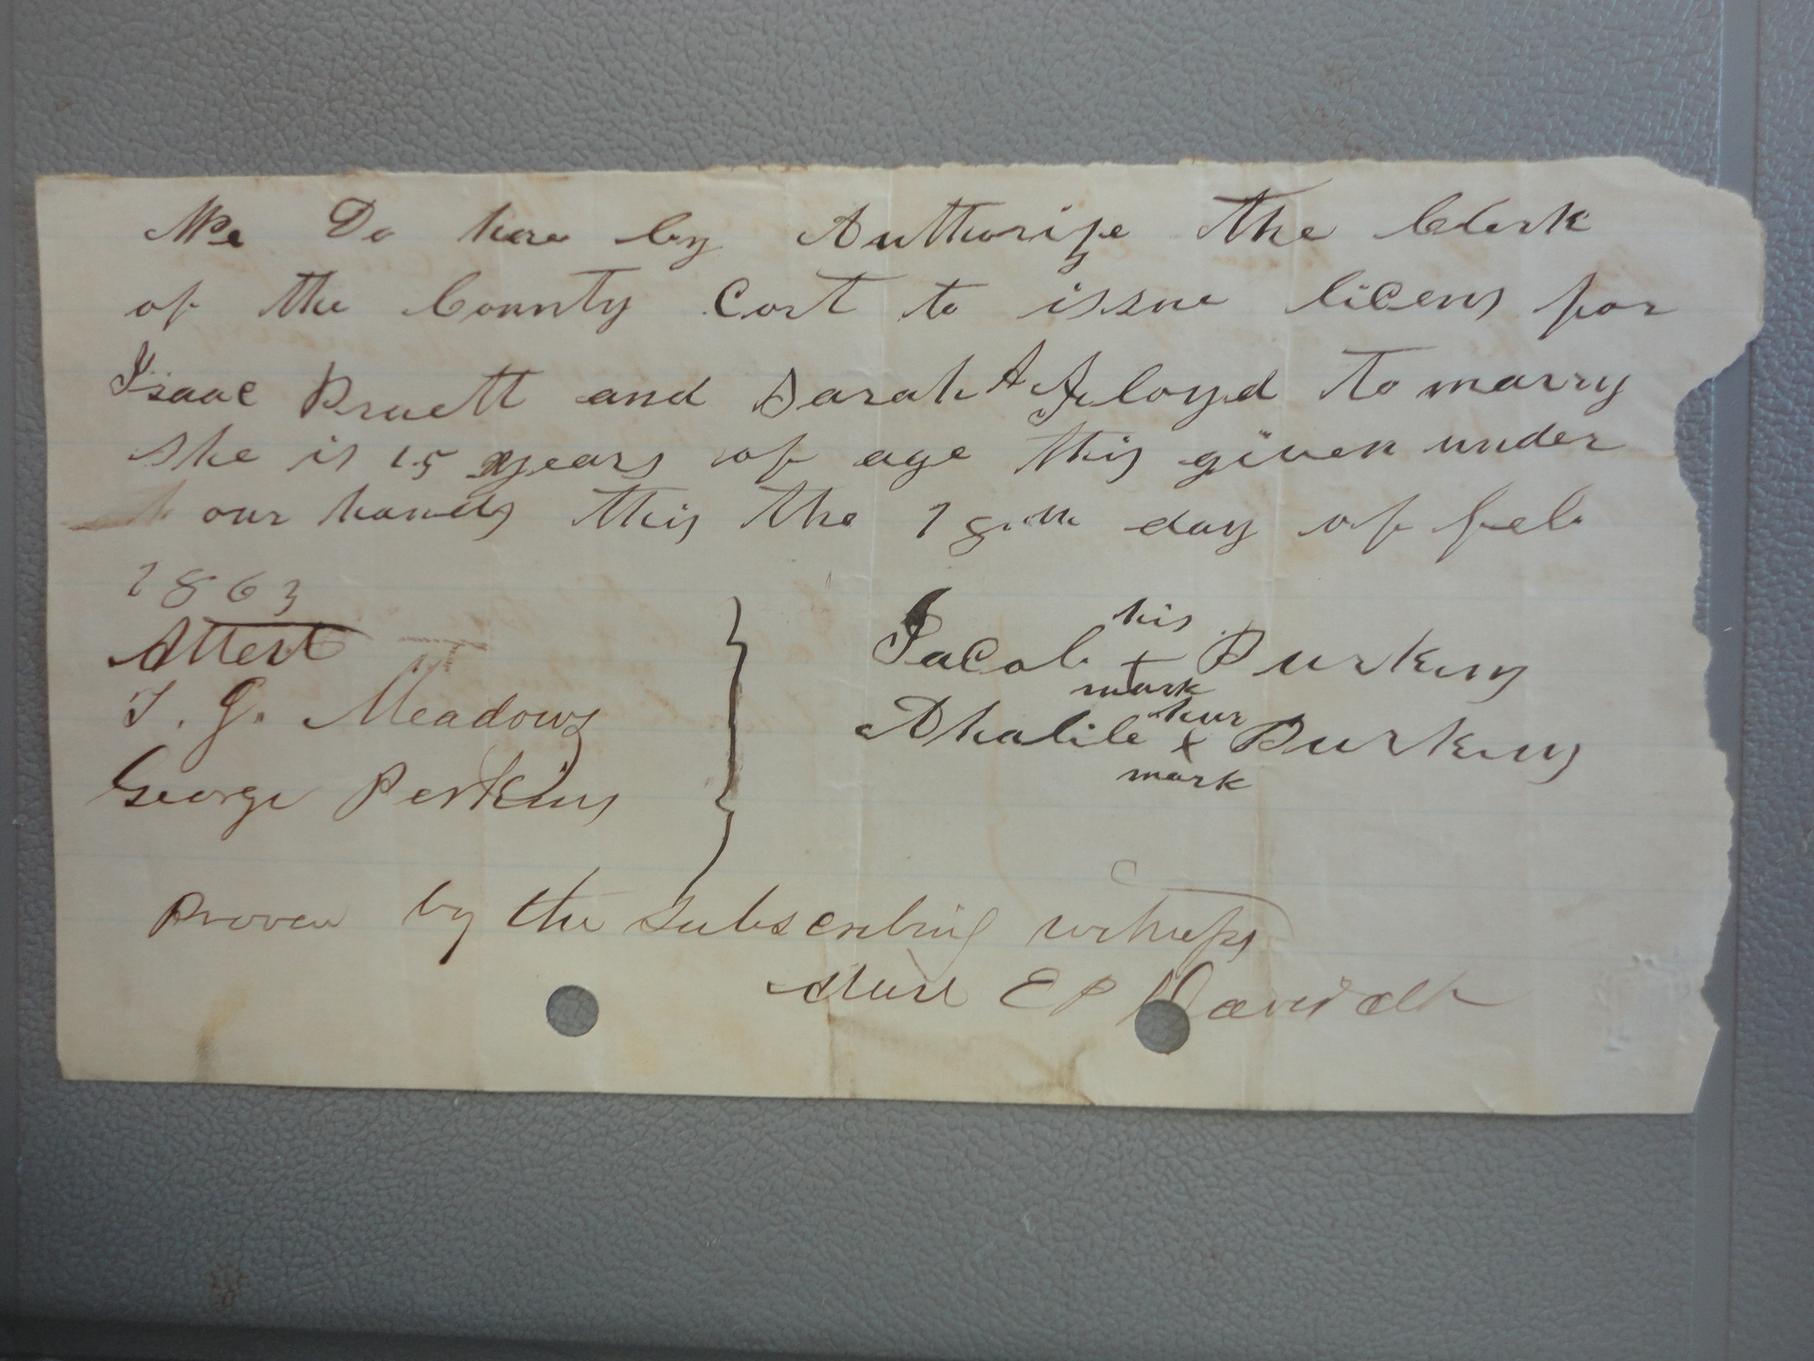 We Do here by Authorize the Clerk
of the County Cort to issue licens for
Isaac Pruett and Sarah A Floyd to marry
she is 15 years of age this given under
our hands this the 18th day of feb
1863
Attest
T. G. Meadows
George Perkins
his
Jacob + Purkins
mark
hur
x Purkins
mark
Proven by the subscribing witness
E P